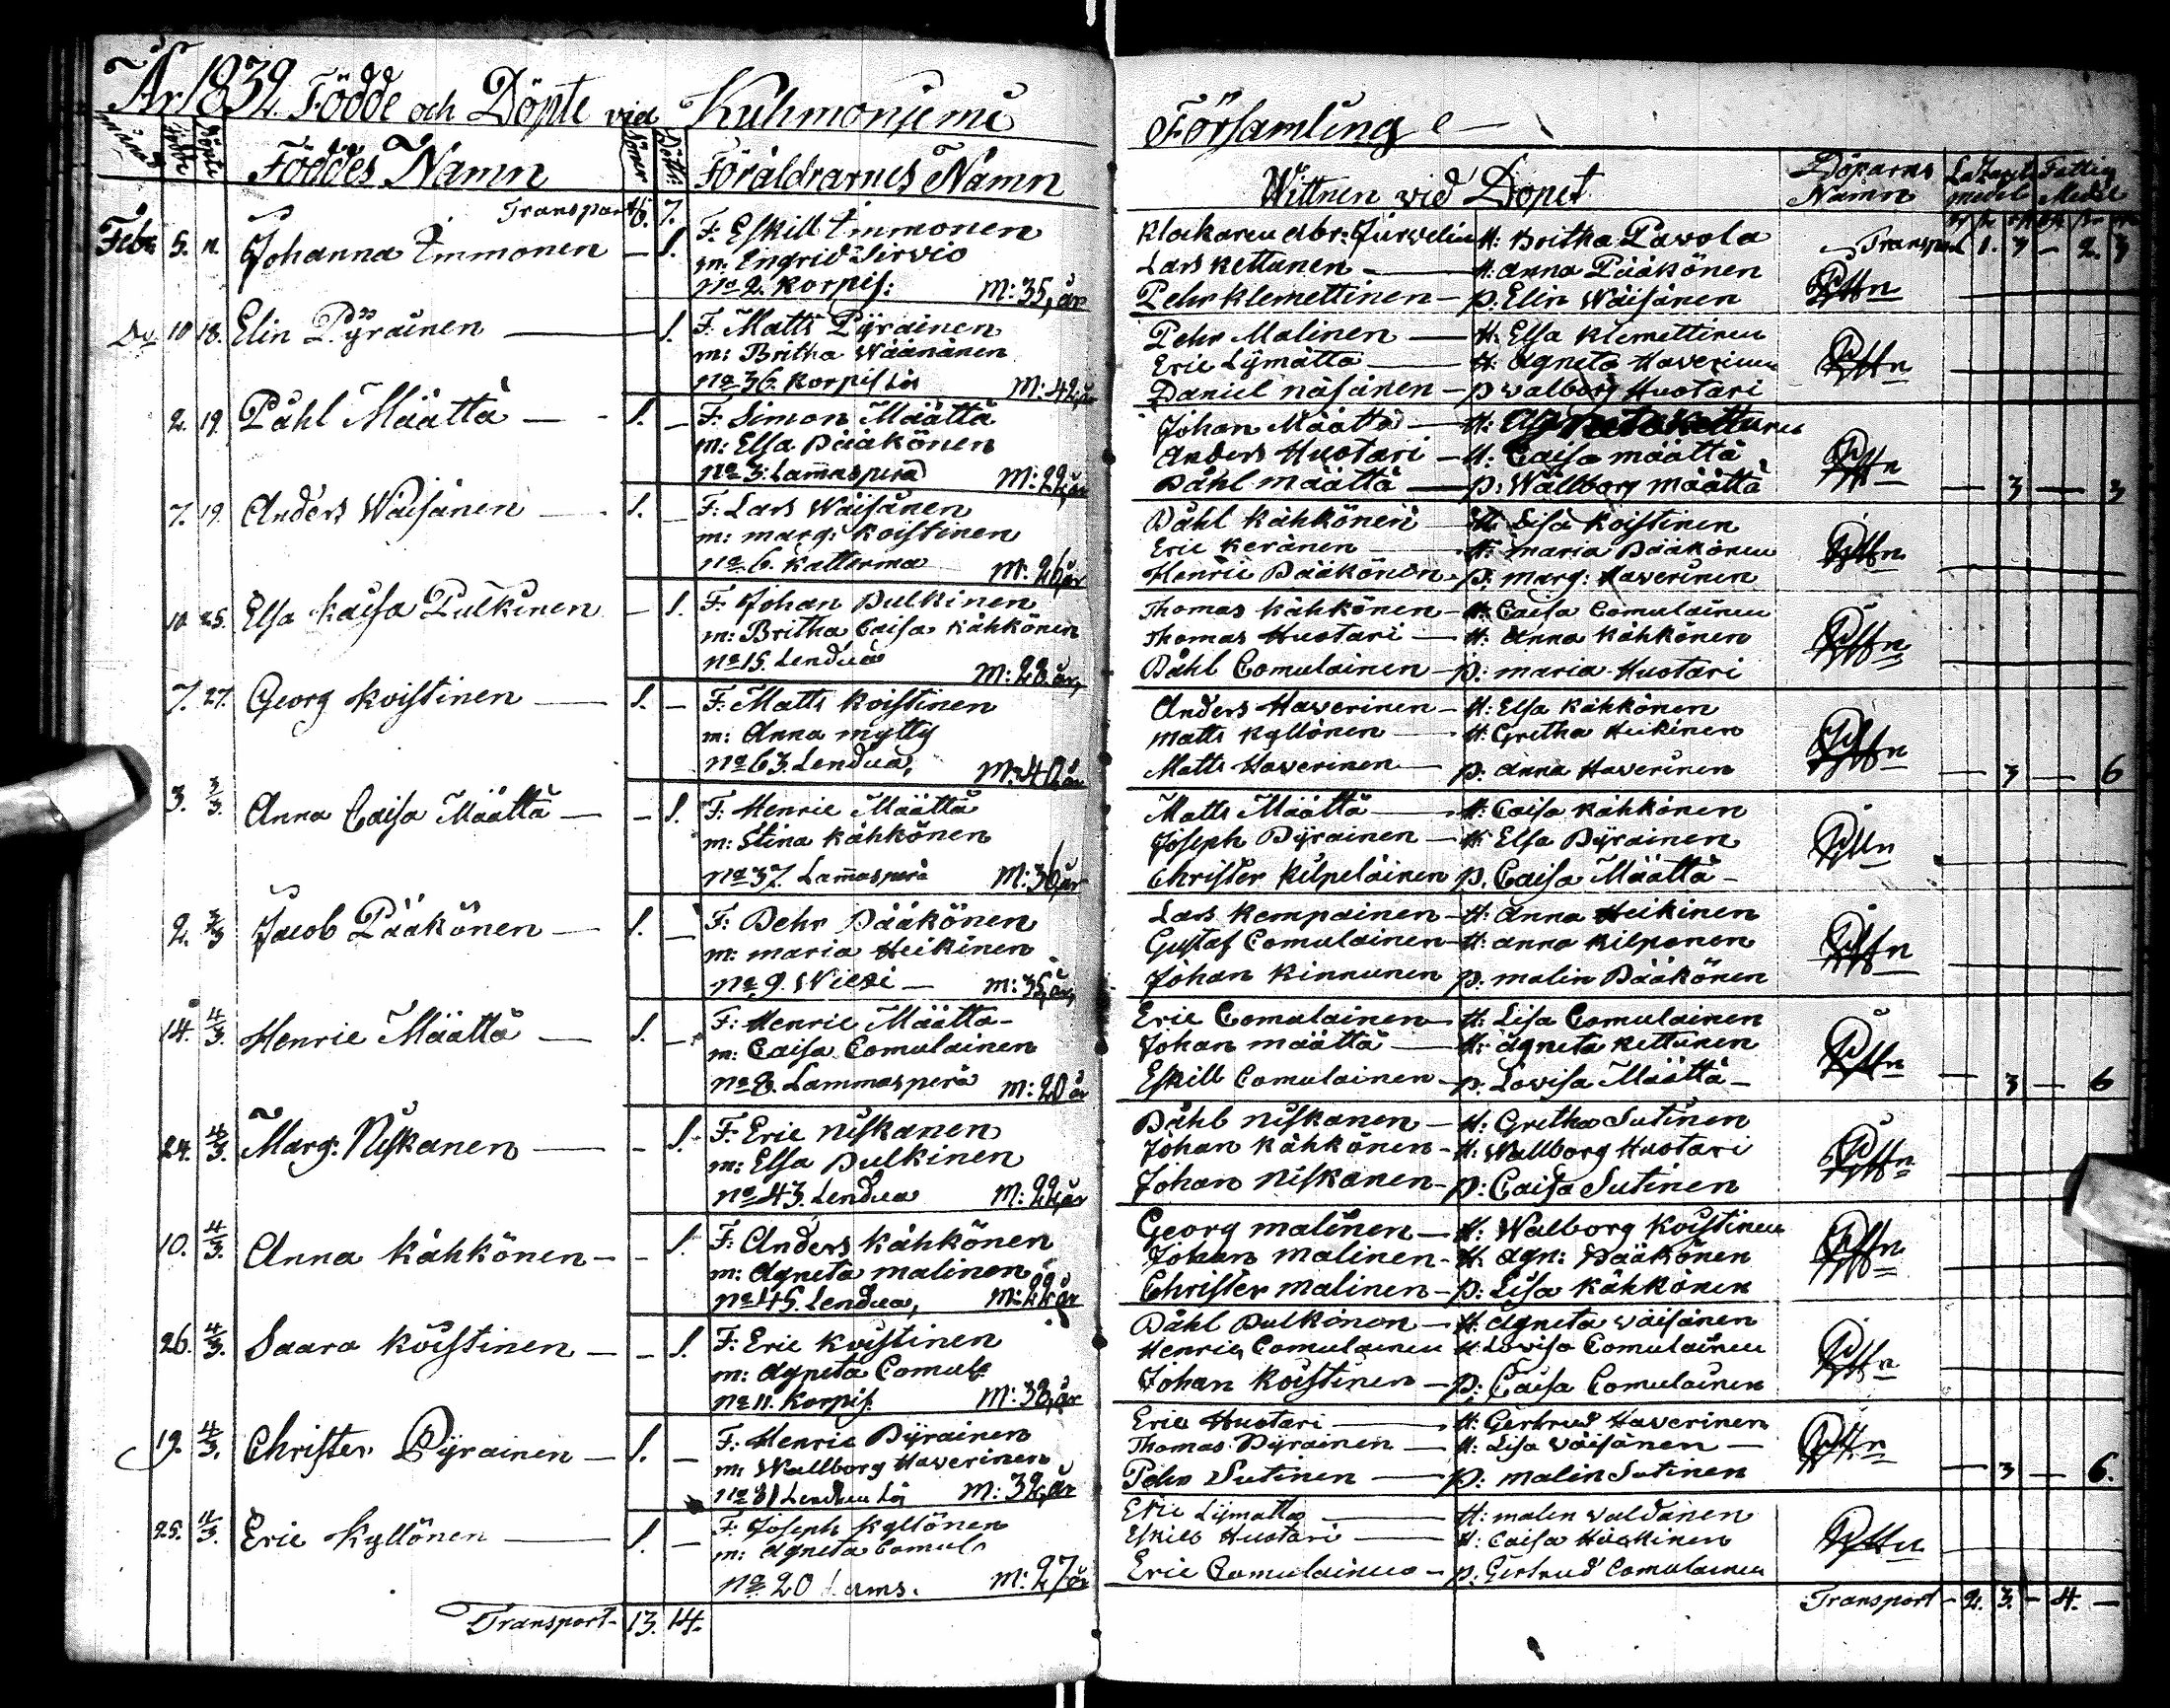 År 1832. Födde och Döpte vid Kuhmoniemi
Församling
Månad Födde Döpte Föddes Namn Söner Döttr: Föräldrarnes Namn
Wittnen vid Dopet Döparns Namn Lazarets medel Fattig Medel
Transport 6. 7.
Transport 1. 3 – 2. 3
Febr 5. 12. Johanna Immonen – 1.
F: Eskill Immonen
m: Ingrid Sirviö
No 2. Korpis: M: 35, år
Klockaren Abr: Jürvelin H: Britha Pavola
Lars Kettunen – H: Anna Pääkönen
Pehr Klemettinen – p. Elin Wäisänen
Do 10 18. Elin Pÿräinen – 1.
F: Matts Pÿräinen
m: Britha Wäänänen
No 36. Korpis M: 42, år
Pehr Malinen – H: Elsa Klemettinen
Eric Lÿmatta – H: Agneta Haverinen
Daniel Näsänen – p Walborg Huotari
2. 19. Påhl Määttä – 1. –
F: Simon Määttä
m: Elsa Pääkönen
No 3. Lam̄asperä M: 22, år
Johan Määttä – H: Kettunen
Anders Huotari – H: Caisa Määttä
Påhl Määttä – p: Wallborg Määttä
– 3 – 3
7. 19. Anders Wäisänen – 1. –
F: Lars Wäisänen
m: Marg: Koistinen
No 6. Katterma M: 26, år
Påhl Kähkönen H: Lisa Koistinen
Eric Keränen – H: Maria Pääkönen
Henric Pääkönen p: Marg: Haverinen
10. 25. Elsa Kaisa Pulkinen – 1.
F: Johan Pulkinen
m: Britha Caisa Kähkönen
No 15. Lendua M: 28. år,
Thomas Kähkönen – H: Caisa Comulainen
Thomas Huotari – H: Anna Kähkönen
Påhl Comulainen – p: Maria Huotari
7. 27. Georg Koistinen – 1. –
F: Matts Koistinen
m: Anna Mytty
No 63. Lendua, M: 40, år
Anders Haverinen – H: Elsa Kähkönen
Matts Kyllönen – H: Gretha Heikinen
Matts Haverinen – p: Anna Haverinen
– 3 – 6
3. 3/3. Anna Caisa Määttä – – 1.
F: Henric Määttä
m: Stina Kähkönen
No 37. Lam̄asperä M: 36, år
Matts Määttä – H: Caisa Kähkönen
Joseph Pÿräinen – H: Elsa Pÿräinen
Christer Kilpeläinen p. Caisa Määttä –
2. 3/3 Jacob Pääkönen – 1. –
F: Pehr Pääkönen
m: Maria Heikinen
No 9. Wiexi – M: 35, år,
Lars Kempainen – H: Anna Heikinen
Gustaf Comulainen – H: Anna Kilponen
Johan Kinnunen p: Malin Pääkönen
14. 4/3. Henric Määttä – 1. –
F: Henric Määttä –
m: Caisa Comulainen
No 8. Lammasperä M: 20 år
Eric Comulainen – H: Lisa Comulainen
Johan Määttä – H: Agneta Kettunen
Eskill Comulainen – p. Lovisa Määttä –
– 3 – 6
24. 4/3. Marg: Niskanen – – 1.
F: Eric Niskanen
m: Elsa Pulkinen
No 43. Lendua M: 22, år
Påhl Niskanen – H: Gretha Sutinen
Johan Kähkönen – H: Wallborg Huotari
Johan Niskanen – p: Caisa Sutinen
10. 4/3. Anna Kähkönen – – 1.
F: Anders Kähkönen
m: Agneta Malinen
No 45. Lendua, M: år
Georg Malinen – H: Walborg Koistinen
Johan Malinen – H: Agn: Pääkönen
Christer Malinen – p: Lisa Kähkönen
26. 4/3. Saara Koistinen – – 1.
F: Eric Koistinen
m: Agneta Comul:
No 11. Korpis. M: 38, år
Påhl Pulkonen – H: Agneta Wäisänen
Henric Comulainen H Lovisa Comulainen
Johan Koistinen – p: Caisa Comulainen
19. 4/3. Christer Pÿräinen – 1. –
F: Henric Pÿräinen
m: Wallborg Haverinen
No 31 Lendua M: 32, år
Eric Huotari – H: Gertrud Haverinen
Thomas Pÿräinen – H: Lisa Wäisänen –
Pehr Sutinen – p: Malin Sutinen
– 3 – 6.
25. 4/3. Eric Kyllönen – 1. –
F: Joseph Kyllönen
m: Agneta Comul
No 20 Lams. M: 27 år
Eric Lÿmatta – H: Malin Waldanen
Eskill Huotari – H: Caisa
Eric Comulainen – p. Gertrud Comulainen
Transport – 13. 14.
Transport – 2. 3. – 4. –